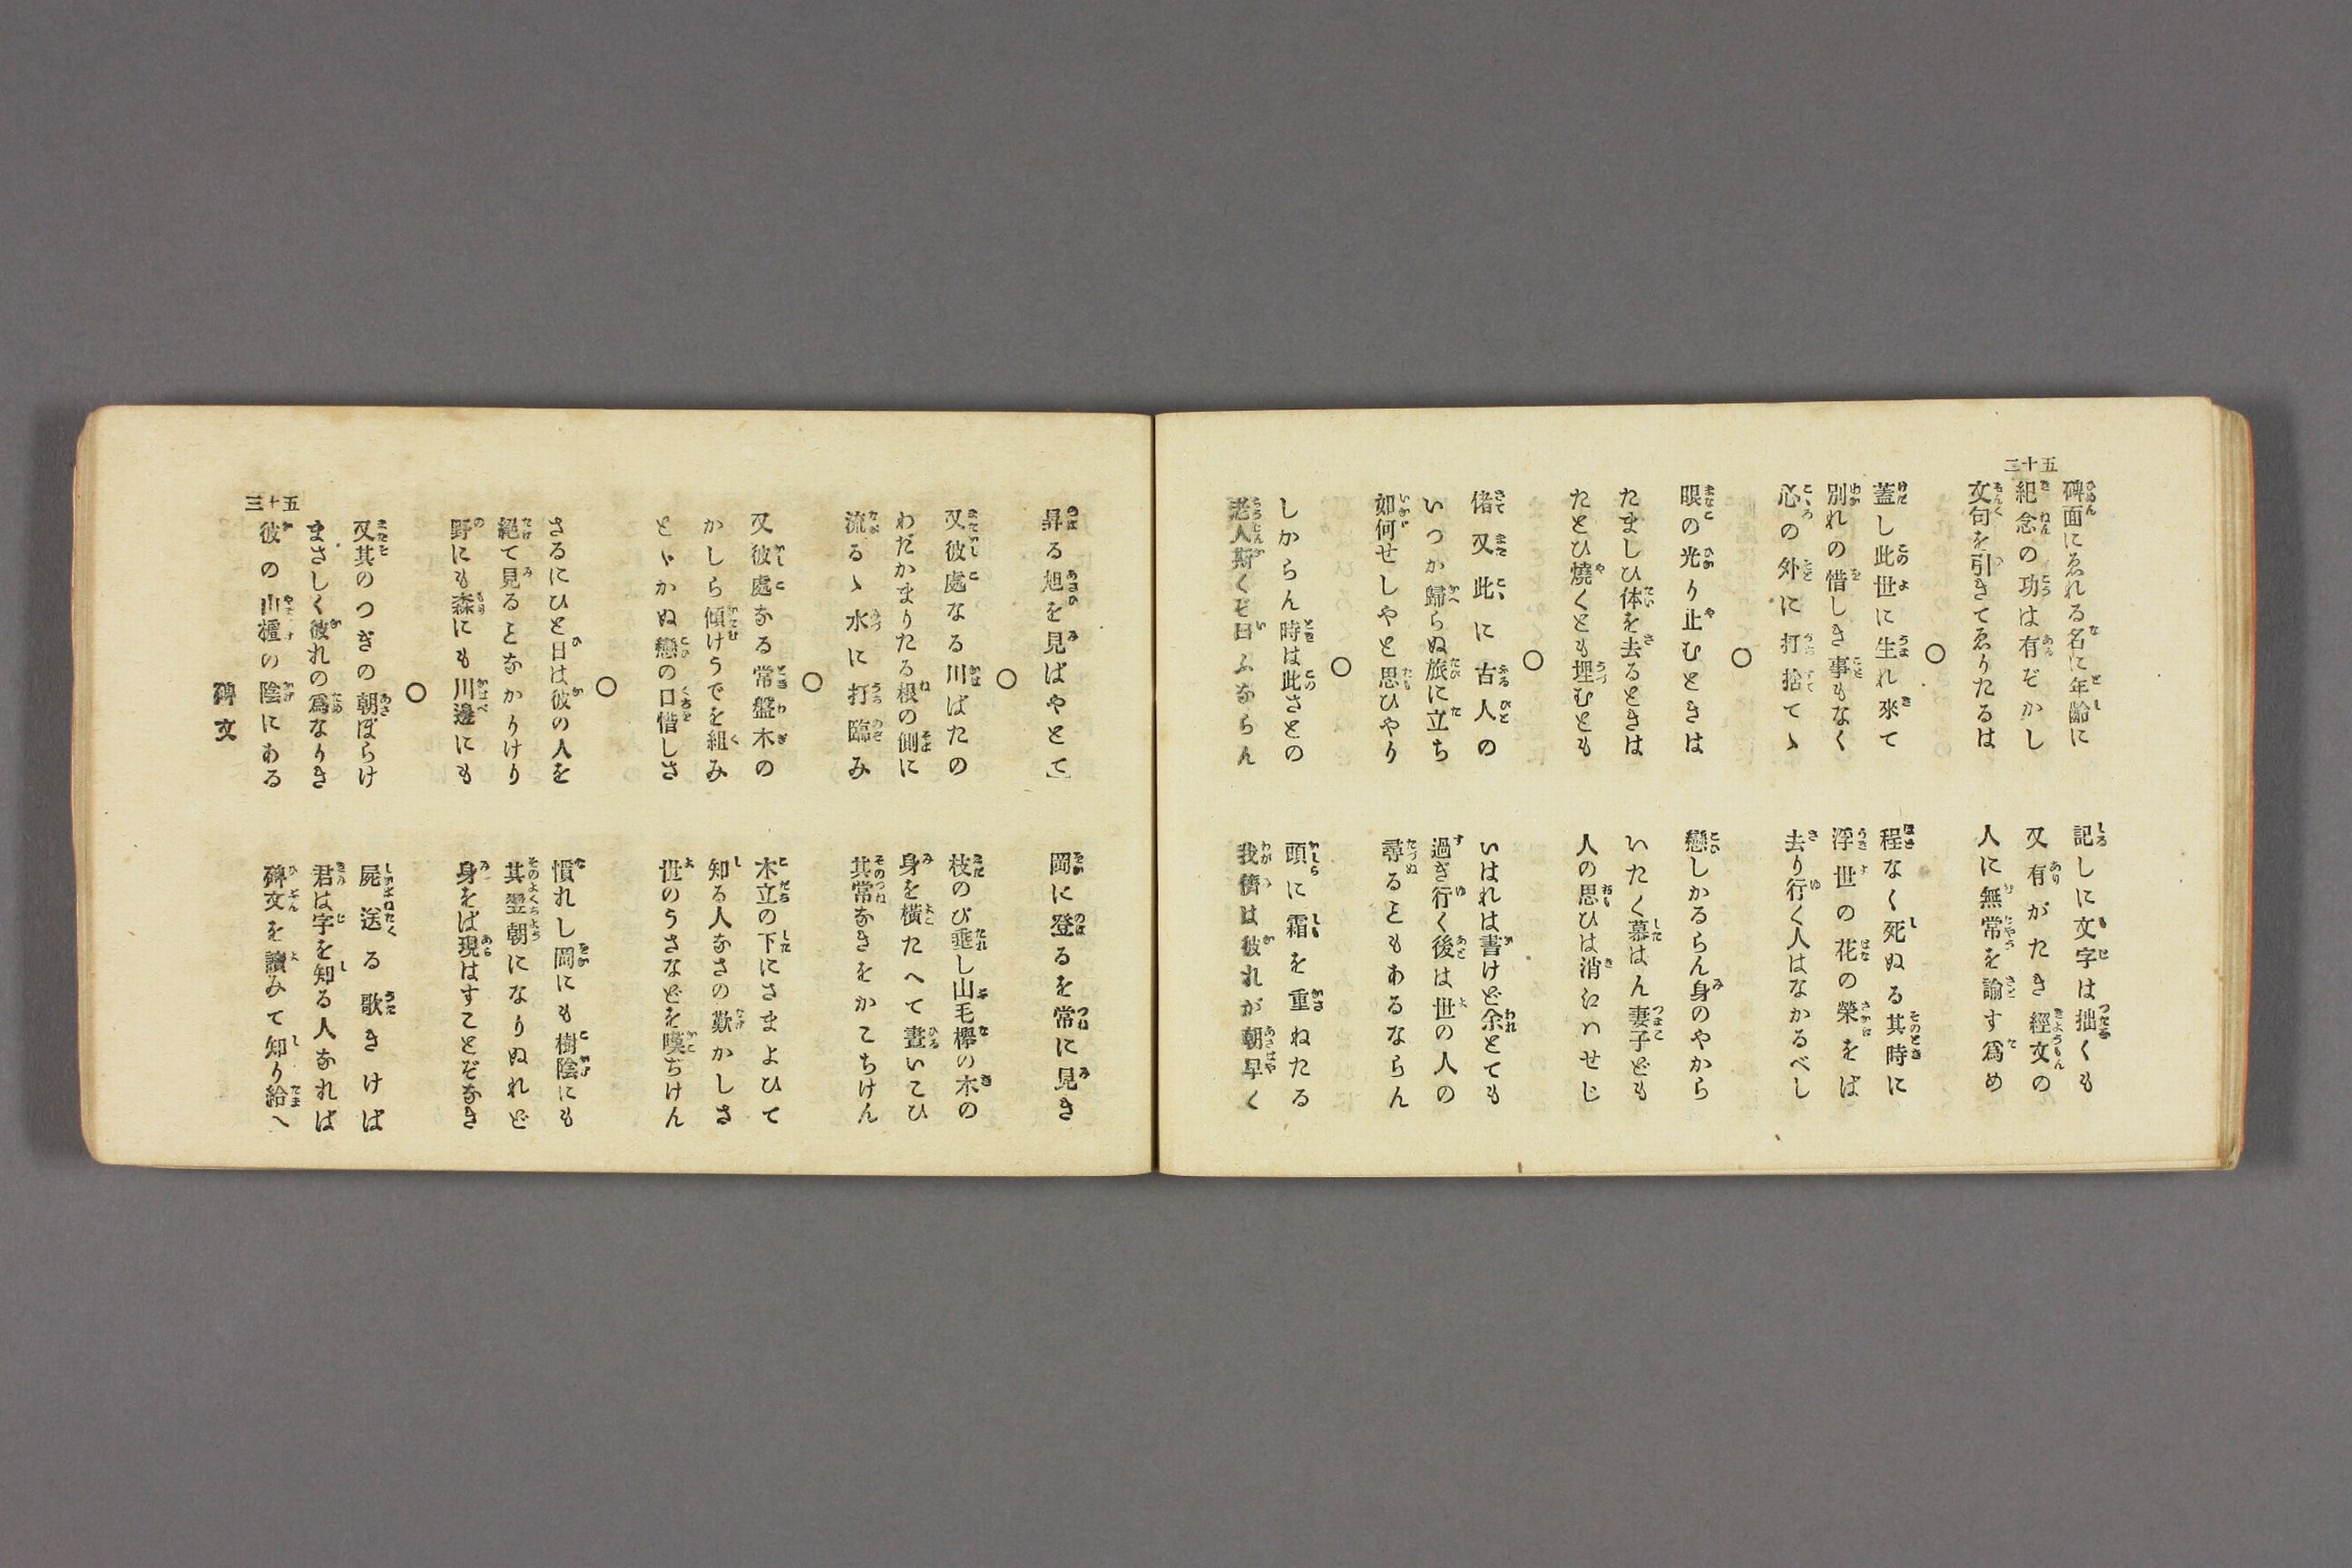 五十二
碑面にゑれる名に年齢に　記しに文字は拙くも
紀念の功は有ぞかし　又有がたき經文の
文句を引きてゑりたるは　人に無常を諭す爲め
○
蓋し此世に生れ來て　程なく死ぬる其時に
別れの惜しき事もなく　浮世の花の榮をば
心の外に打捨てゝ　去り行く人はなかるべし
○
眼の光り止むときは　戀しかるらん身のやから
たましひ体を去るときは　いたく慕はん妻子ども
たとひ燒くとも埋むとも　人の思ひは消えはせじ
○
偖又此に古人の　いはれは書けど余とても
いつか歸らぬ旅に立ち　過ぎ行く後は世の人の
如何せしやと思ひやり　尋るともあるならん
○
しからん時は此さとの　頭に霜を重ねたる
老人斯くぞ曰ふならん　我儕は彼れが朝早く
昇る旭を見ばやとて」　岡に登るを常に見き
○
又彼處なる川ばたの　枝のび垂し山毛欅の木の
わだかまりたる根の側に　身を横たへて晝いこひ
流るゝ水に打臨み　其常なきをかこちけん
○
又彼處なる常盤木の　木立の下にさまよひて
かしら傾けうでを組み　知る人なさの歎かしさ
とゝかぬ戀の口惜しさ　世のうさなどを嘆ぢけん
○
さるにひと日は彼の人を　慣れし岡にも樹陰にも
絕て見ることなかりけり　其翌朝になりぬれど
野にも森にも川邊にも　身をば現はすことぞなき
○
又其のつぎの朝ぼらけ　屍送る歌きけば
まさしく彼れの爲なりき　君は字を知る人なれば
彼の山檀の陰にある　碑文を讀みて知り給へ
碑文
五十三